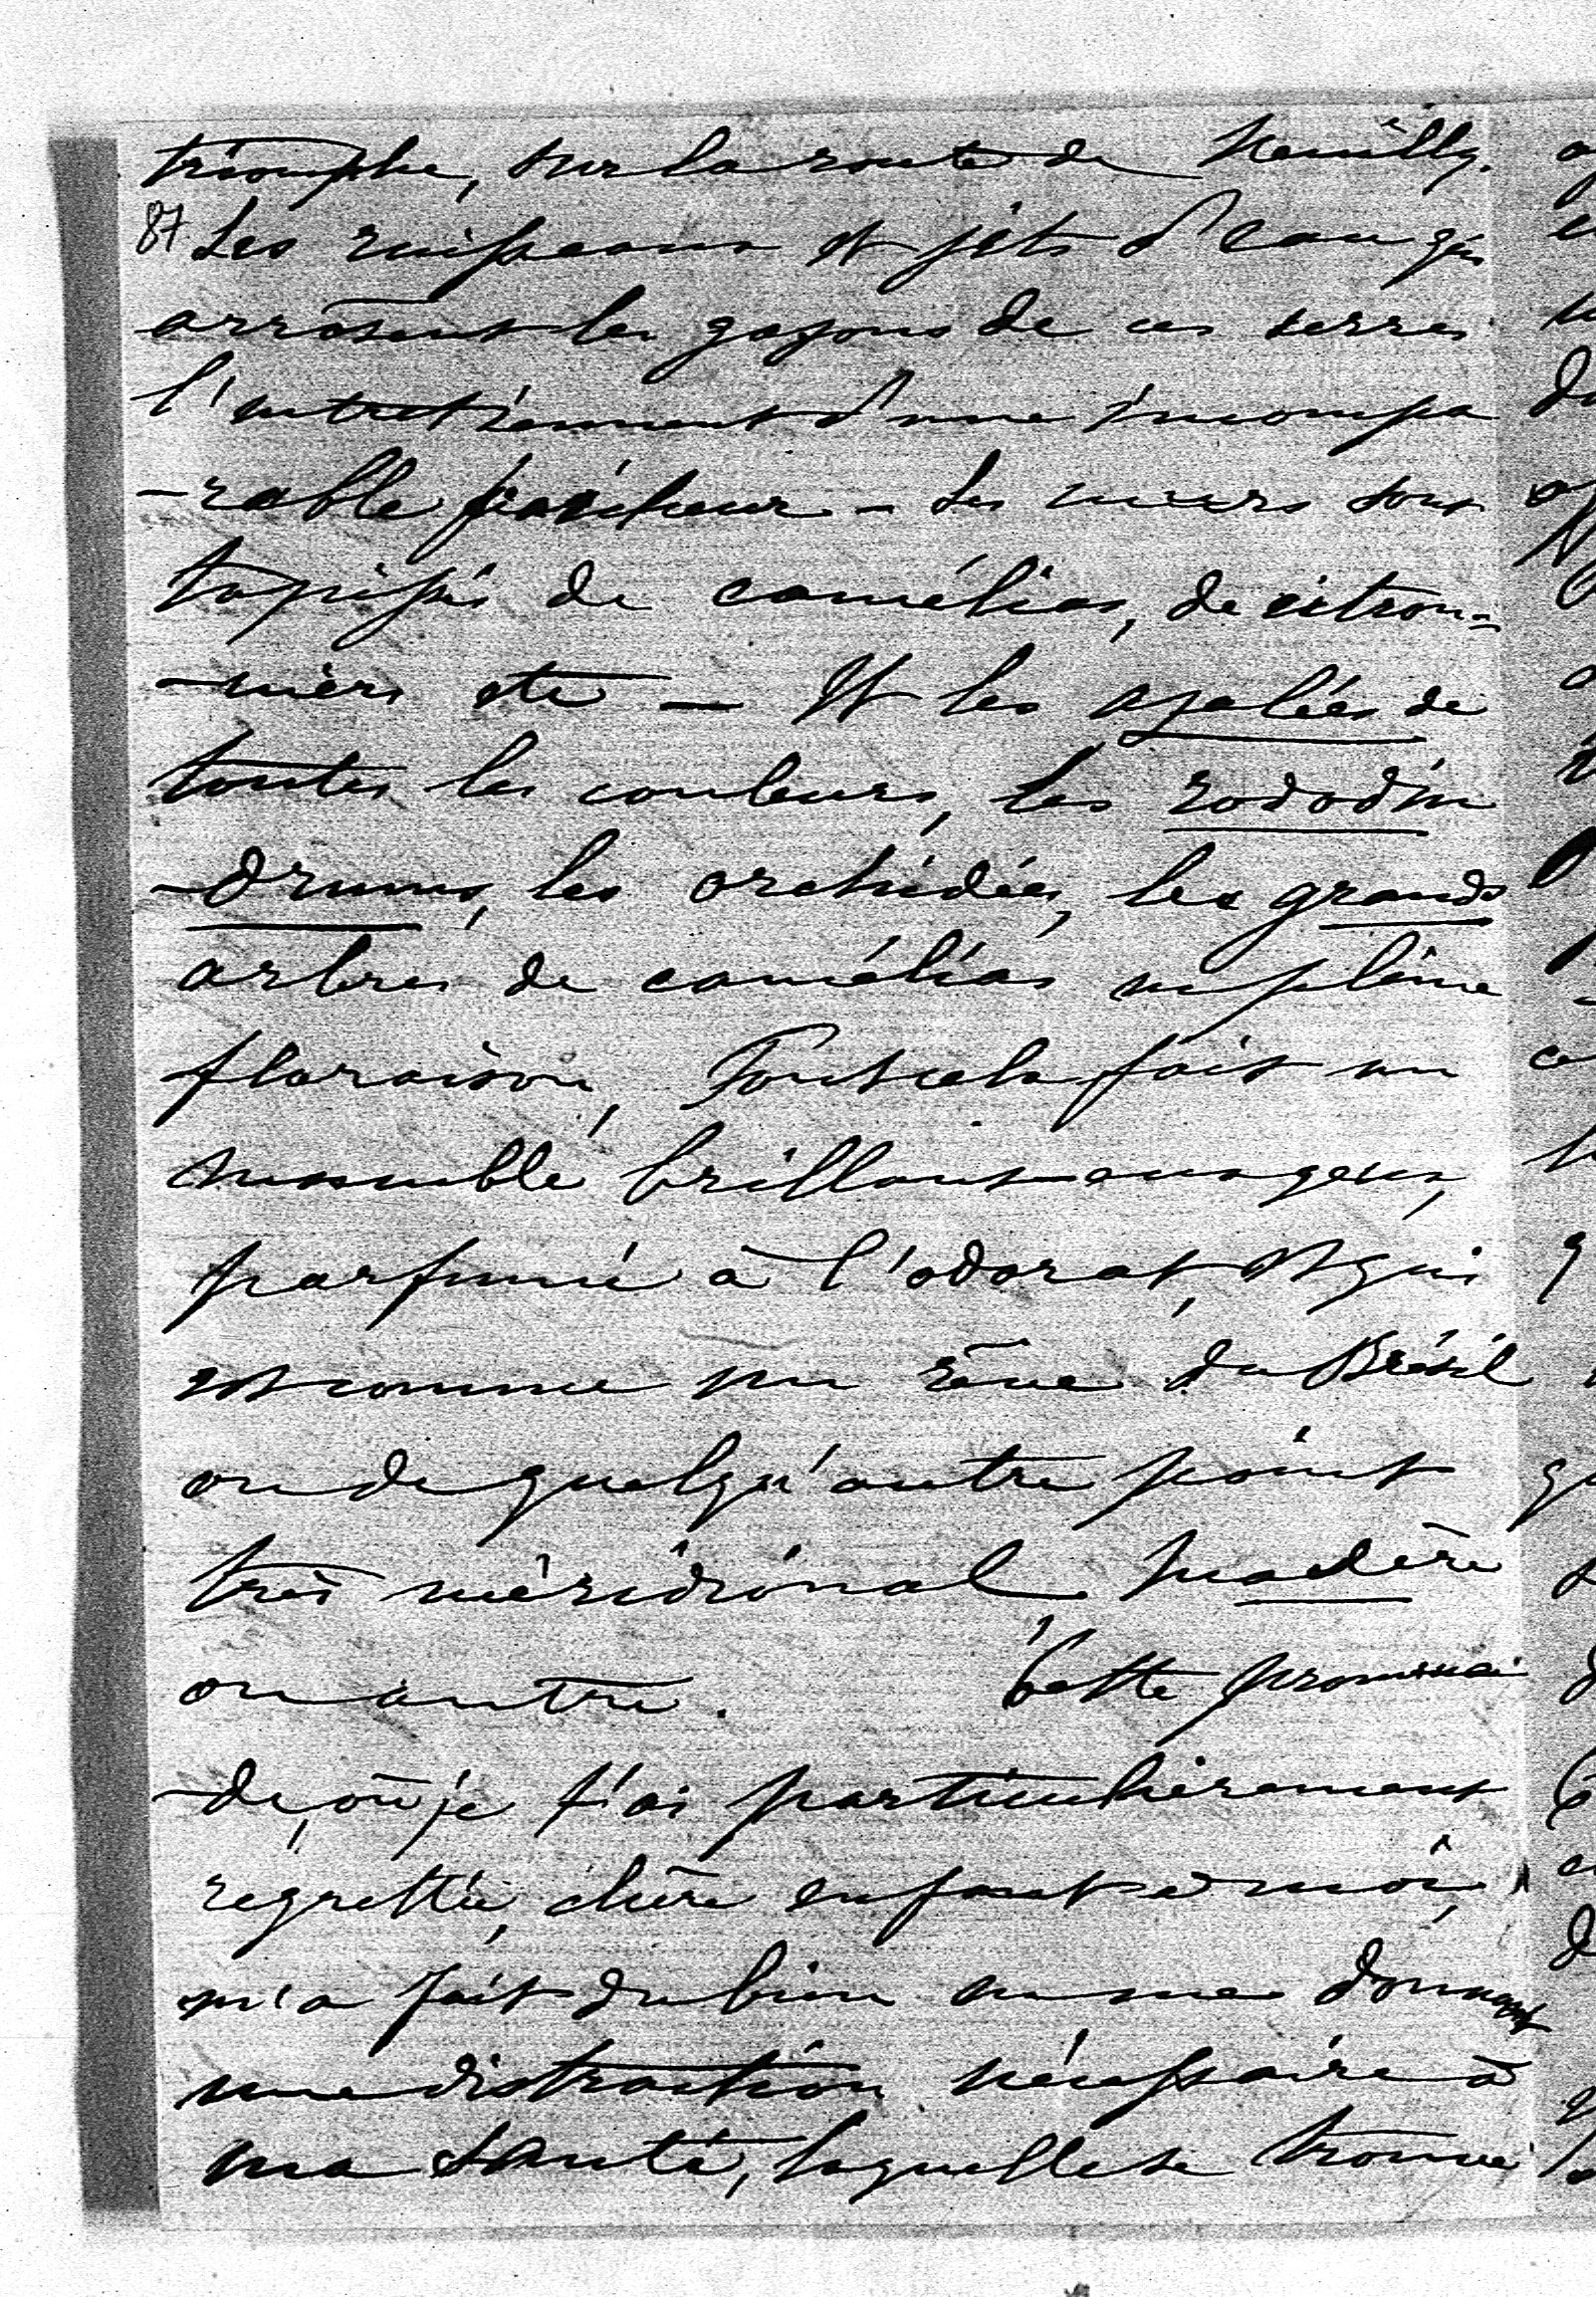 triomphe, sur la route de Neuilly.
87 Les ruisseaux et jets d'eau qui
arrosent les gazons de ces serres
l'entretiennent d'une incompa
-rable fraicheur - Les murs sont
tapissés de camélias, de citron-
-niers etc - Et les azalées de
toutes les couleurs, les rododen
-drums, les orchidées, les grands
arbres de camélias en pleine
floraison, Tout cela fait un
ensemble brillant aux yeux,
parfumé à l'odorat, et qui
est comme un rêve du Brésil
ou de quelqu'autre point
très méridional, Madère
ou autre. Cette promena
-de, où je t'ai particulièrement
regrettée, chère enfant à moi,
m'a fait du bien en me donnant
une distraction nécessaire à
ma santé, laquelle se trouve